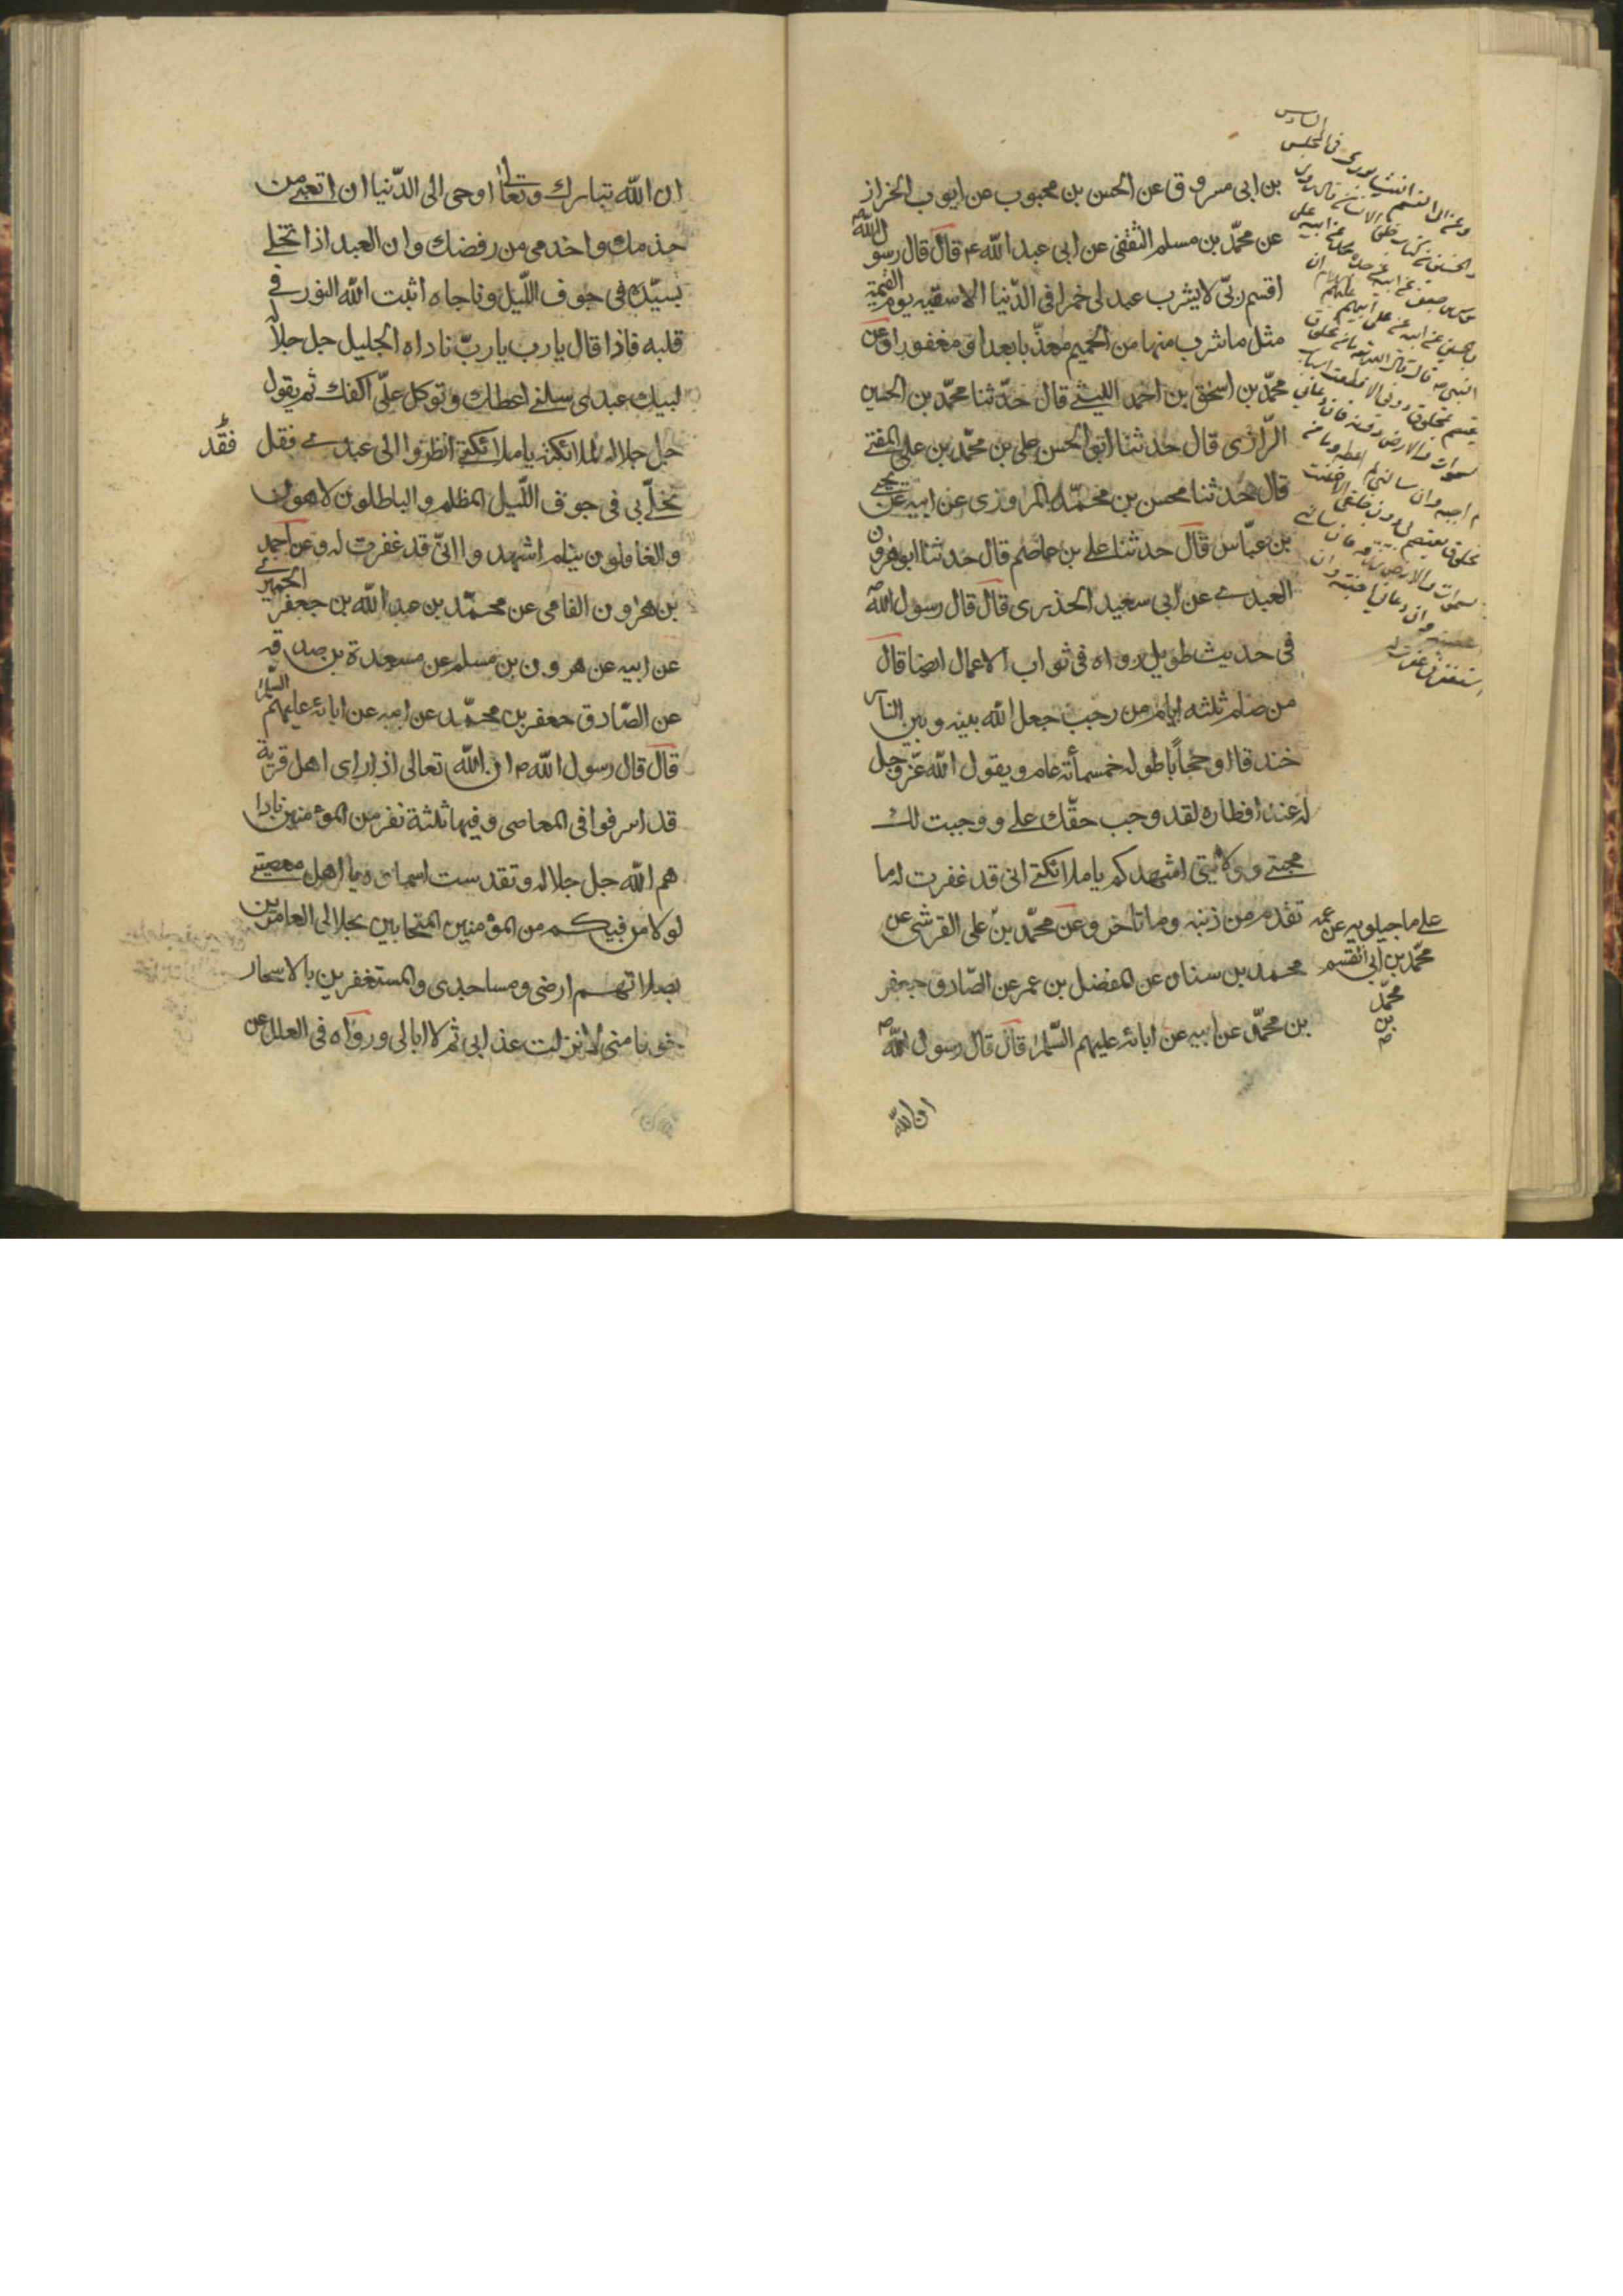 بن ابى مسروق عن الحسن بن محبوب عن ايوب الخراز
عن محمّد بن مسلم الثقفى عن ابى عبد الله ع قال قال رسول الله ص
اقسم ربّى لا يشرب عبد لى خمرا فى الدّنيا الا سقيته يوم القيمة
مثل ما شرب منها من الحميم معذّبا بعد او مغفورا وعن
محمّد بن اسحق بن احمد الليثى قال حدّثنا محمّد بن الحسين
الرّازى قال حدثنا ابو الحسن على بن محمّد بن على المفتى
قال حدثنا محسن بن محمّد المروزى عن ابيه عن يحيى
بن عبّاس قال حدثنا على بن عاصم قال حدثنا ابو هرون
العبدى عن ابى سعيد الخدرى قال قال رسول الله ص
فى حديث طويل رواه فى ثواب الاعمال ايضا قال
من صام ثلثه ايام من رجب جعل الله بينه وبين النار
خندقا او حجاباً طوله خمسمأته عام ويقول الله عزّ وجل
له عند افطاره لقد وجب حقّك على ووجبت لك
محبتى وولايتى اشهدكم يا ملائكتى انى قد غفرت له ما
تقدم من ذنبه وما تاخر وعن محمّد بن على القرشى عن
محمد بن سنان عن المفضل بن عمر عن الصّادق جعفر
بن محمّد عن ابيه عن ابائه عليهم السّلام قال قال رسول الله ص
ان الله
على ماجيلويه عن عمه
محمّد بن ابى القسم
محمّد
بن
ص
ان الله تبارك وتعالى اوحى الى الدّنيا ان اتعبى من
خدمك واخدمى من رفضك وان العبد اذا تخلى
بسيّده فى جوف اللّيل وناجاه اثبت الله النور فى
قلبه فاذا قال يا رب يا ربّ ناداه الجليل جل جلاله
لبيك عبدى سلنى اعطك وتوكل علىّ اكفك ثم يقول
جل جلاله لملائكته يا ملائكتى انظروا الى عبدى فقل
فقد
تخلّى بى فى جوف اللّيل المظلم والباطلون لاهون
والغافلون نيام اشهدوا انىّ قد غفرت له وعن احمد
بن هرون الفامى عن محمّد بن عبد الله بن جعفر الحميرى
عن ابيه عن هرون بن مسلم عن مسعدة بن صدقه
عن الصّادق جعفر بن محمّد عن ابيه عن ابائه عليهم السّلام
قال قال رسول الله ص ان الله تعالى اذا راى اهل قرية
قد اسرفوا فى المعاصى وفيها ثلثة نفر من المؤمنين نادا
هم الله جل جلاله وتقدست اسماؤه يا اهل معصيتى
لولا من فيكم من المؤمنين المتحابين بجلالى العامرين
بصلاتهم ارضى ومساجدى والمستغفرين بالاسحار
خوفا منى لانزلت عذابى ثم لا ابالى ورواه فى العلل عن